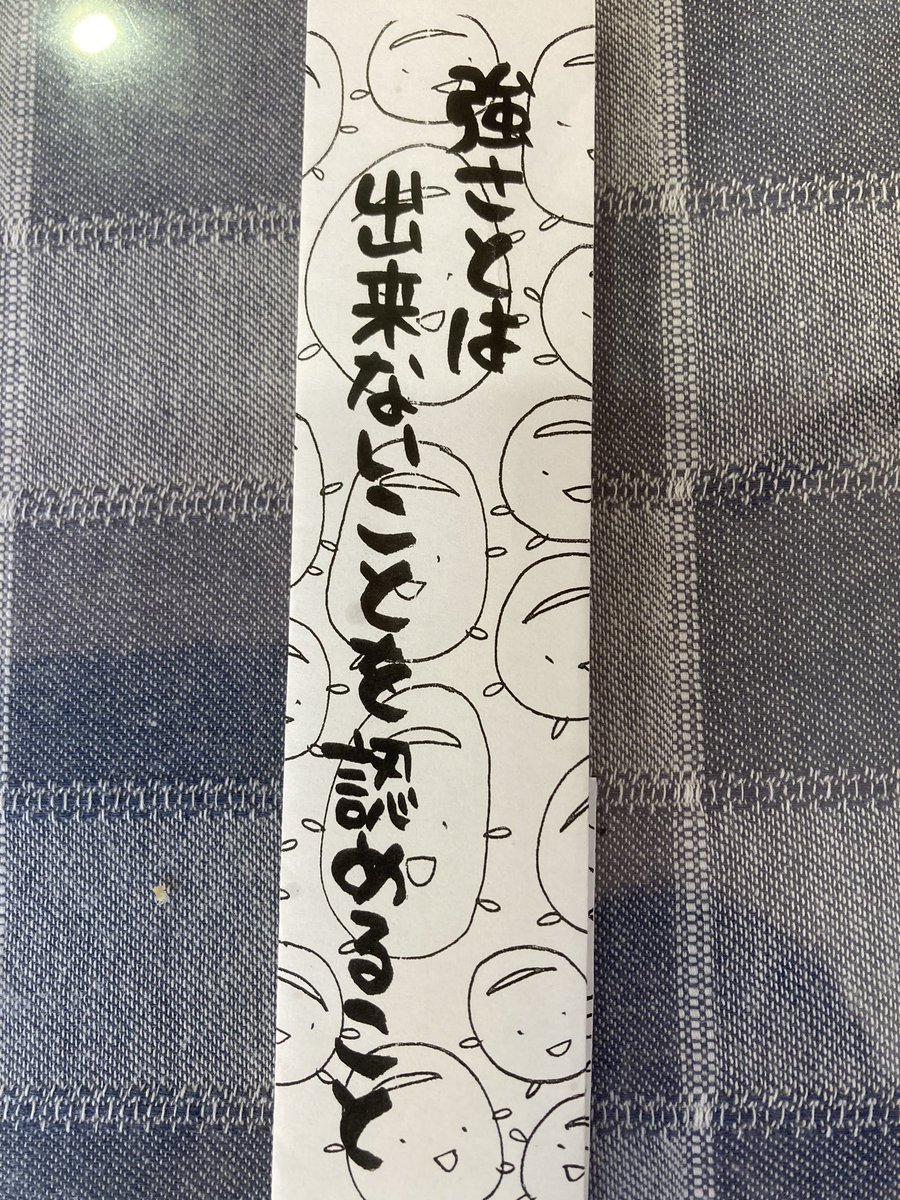 強さとは
出来ないことを認めること